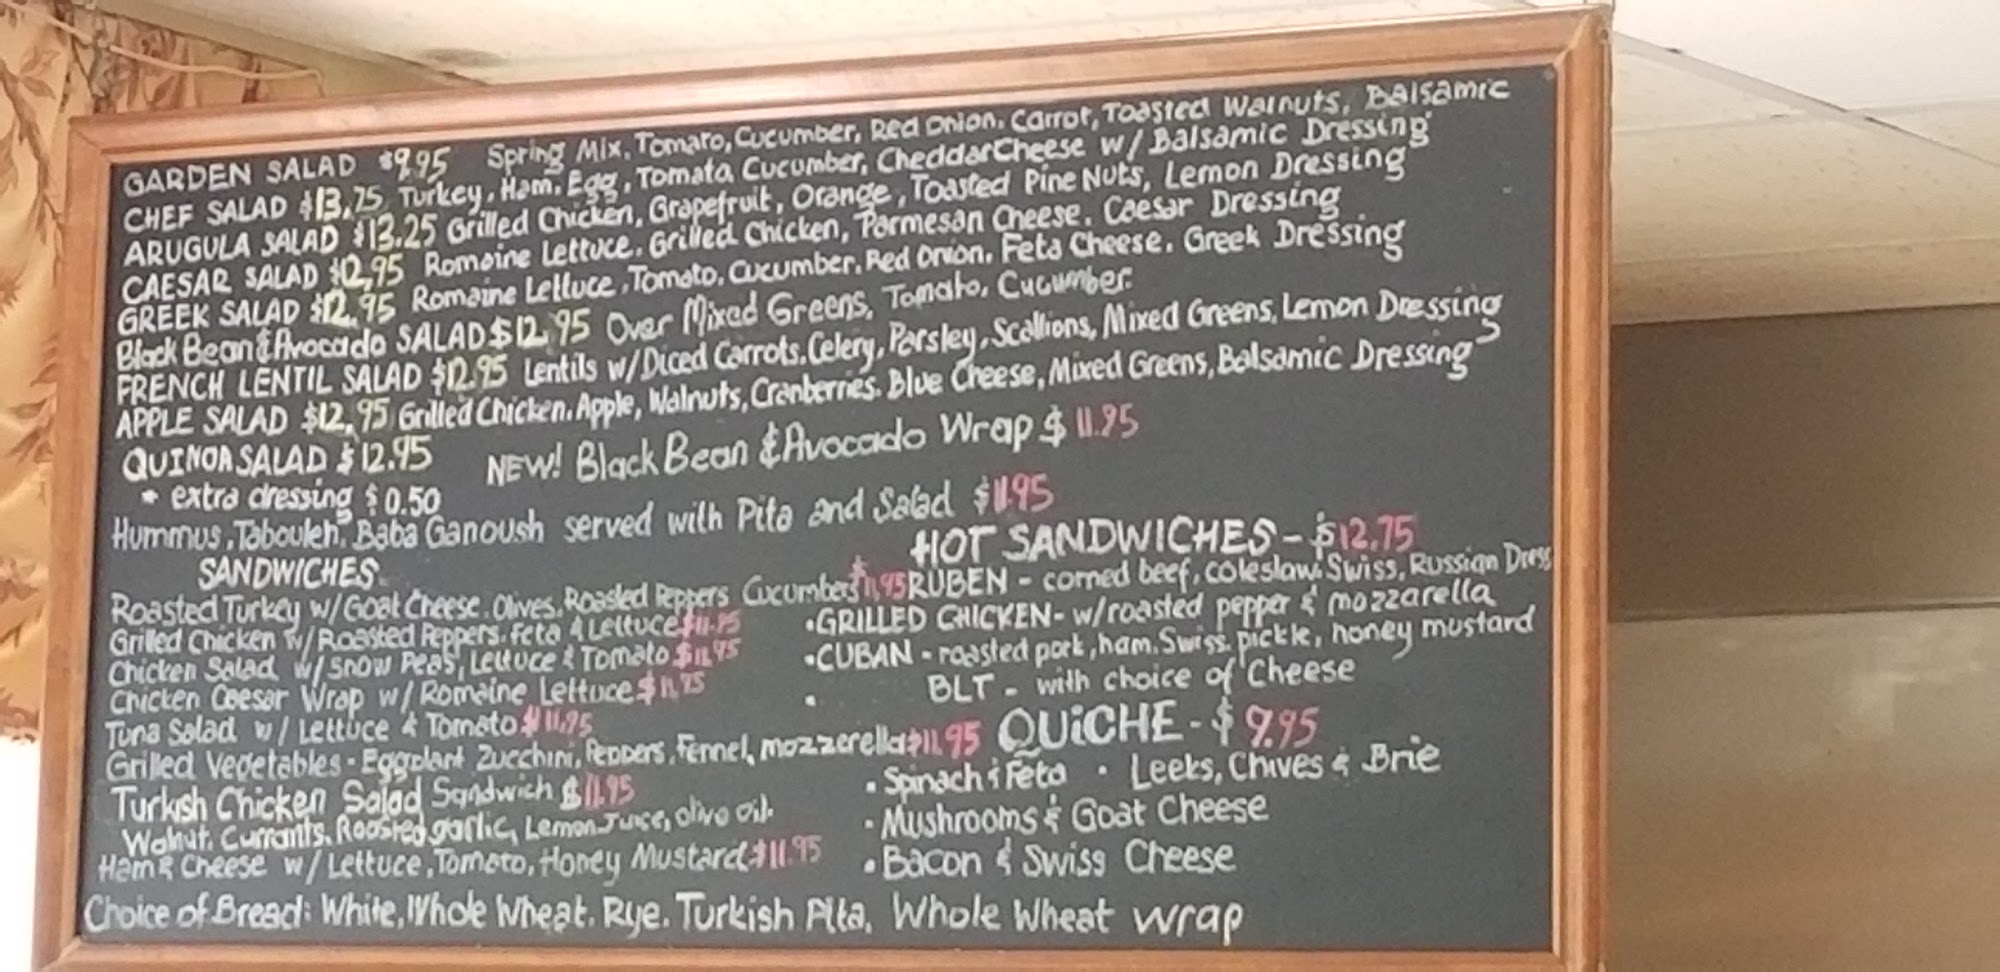 GARDEN SALAD $9.95 Spring Mix, Tomato, Cucumber, Red Onion, Carrot, Toasted Walnuts, Balsamic
CHEF SALAD $13.75 Turkey, Ham, Egg, Tomato, Cucumber, Cheddar Cheese w/ Balsamic Dressing
ARUGULA SALAD $13.25 Grilled Chicken, Grapefruit, Orange, Toasted Pine Nuts, Lemon Dressing
CAESAR SALAD $12.95 Romaine Lettuce, Grilled Chicken, Parmesan Cheese, Caesar Dressing
GREEK SALAD $12.95 Romaine Lettuce, Tomato, Cucumber, Red Onion, Feta Cheese, Greek Dressing
Black Bean & Avocado SALAD $12.95 Over Mixed Greens, Tomato, Cucumber.
FRENCH LENTIL SALAD $12.95 Lentils w/ Diced Carrots, Celery, Parsley, Scallions, Mixed Greens, Lemon Dressing
APPLE SALAD $12.95 Grilled Chicken, Apple, Walnuts, Cranberries, Blue Cheese, Mixed Greens, Balsamic Dressing
QUINOA SALAD $12.95 NEW! Black Bean & Avocado Wrap $11.95
* extra dressing $0.50
Hummus, Tabouleh, Baba Ganoush served with Pita and Salad $11.95
SANDWICHES
Roasted Turkey w/ Goat Cheese, Olives, Roasted Peppers Cucumbers $11.95
Grilled Chicken w/ Roasted Peppers, Feta & Lettuce
Chicken Salad w/ Snow Peas, Lettuce & Tomato $11.95
Chicken Caesar Wrap w/ Romaine Lettuce
Tuna Salad w/ Lettuce & Tomato $11.95
Grilled Vegetables - Eggplant Zucchini, Peppers, Fennel, mozzerella $11.95
Turkish Chicken Salad Sandwich $11.95
Walnut, Currants, Roasted garlic, Lemon Juice, olive oil.
Ham & Cheese w/ Lettuce, Tomato, Honey Mustard $11.95
HOT SANDWICHES - $12.75
RUBEN - corned beef, coleslaw, Swiss, Russian Dress
• GRILLED CHICKEN - w/ roasted pepper & mozzarella
• CUBAN - roasted pork, ham, Swiss, pickle, honey mustard
• BLT - with choice of Cheese
QUiCHE - $9.95
• Spinach & Feta • Leeks, Chives & Brie
• Mushrooms & Goat Cheese
• Bacon & Swiss Cheese
Choice of Bread: White, Whole Wheat, Rye, Turkish Pita, Whole Wheat wrap